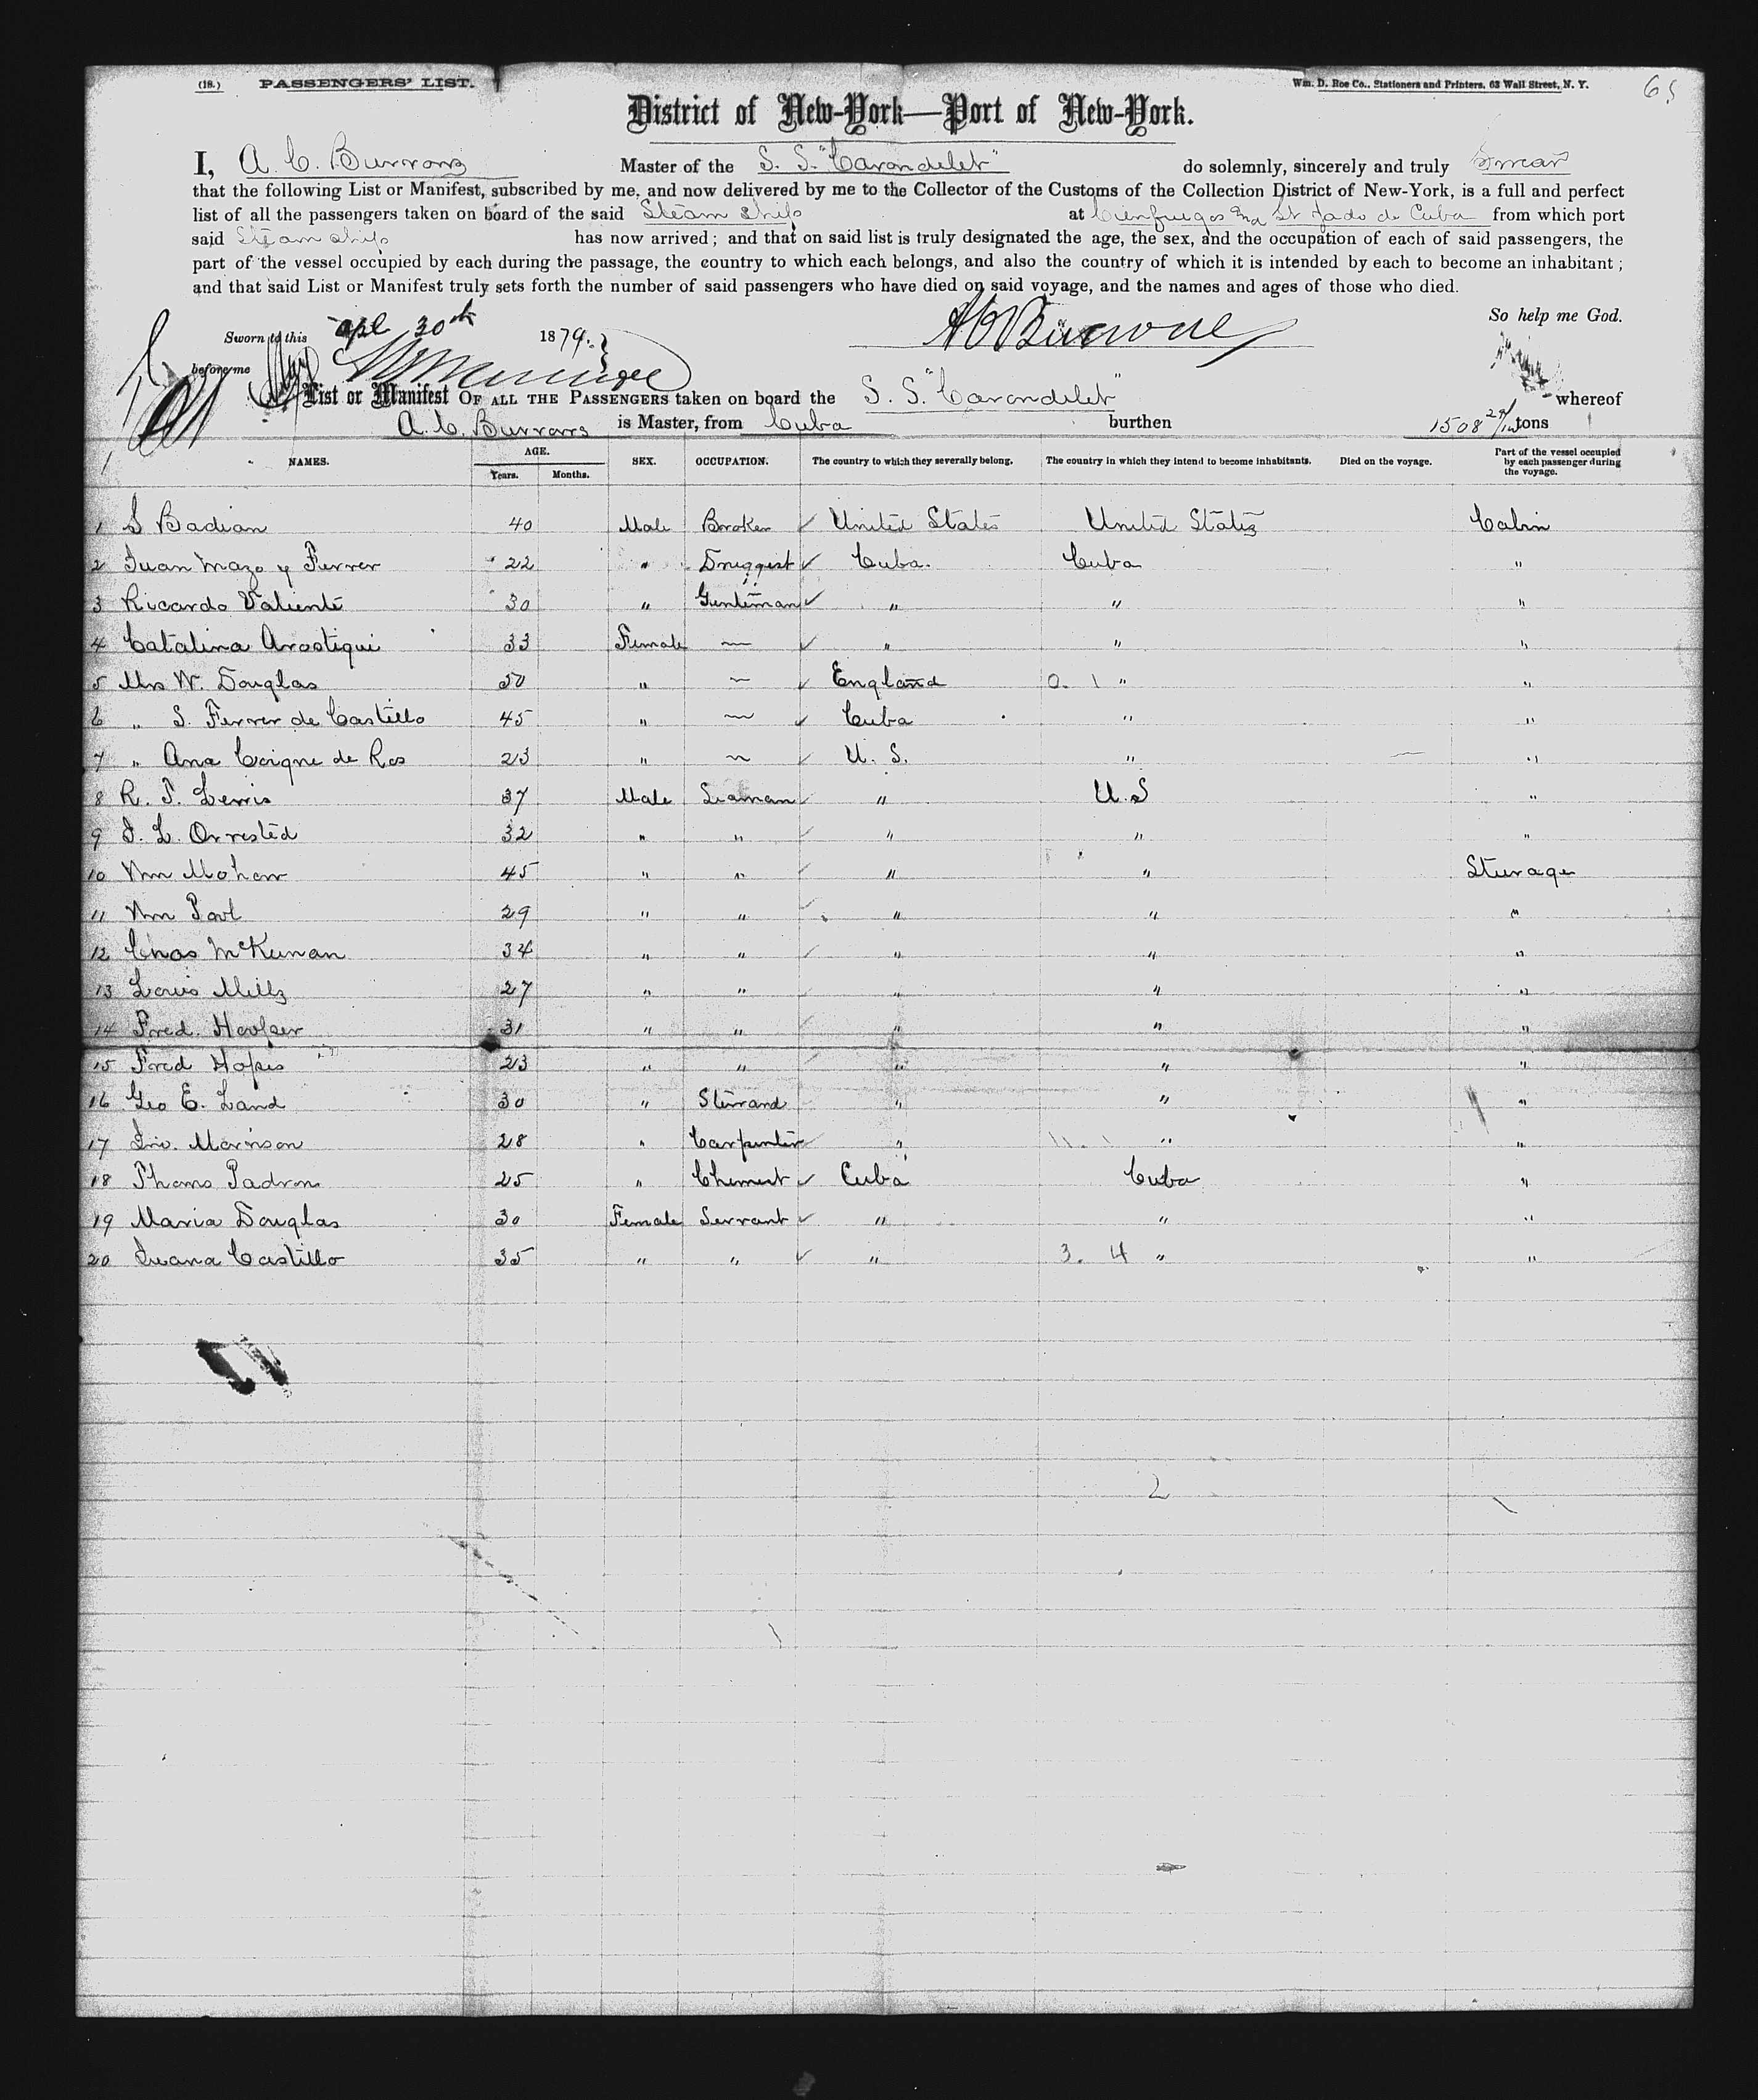 (18.) PASSENGERS' LIST. Wm. D. Roe Co., Stationers and Printers, 63 Wall Street, N. Y. 65
District of New-York—Port of New-York.
I, A. C. Burrows Master of the S. S. "Carondelet" do solemnly, sincerely and truly swear
that the following List or Manifest, subscribed by me, and now delivered by me to the Collector of the Customs of the Collection District of New-York, is a full and perfect
list of all the passengers taken on board of the said Steam ship at Cienfuegos and St Jado de Cuba from which port
said Steam ship has now arrived; and that on said list is truly designated the age, the sex, and the occupation of each of said passengers, the
part of the vessel occupied by each during the passage, the country to which each belongs, and also the country of which it is intended by each to become an inhabitant;
and that said List or Manifest truly sets forth the number of said passengers who have died on said voyage, and the names and ages of those who died.
So help me God.
Sworn to this apl 30th 1879.
before me
List or Manifest OF ALL THE PASSENGERS taken on board the S. S. "Carondelet" whereof
A. C. Burrows is Master, from Cuba burthen 1508 tons
NAMES. AGE. Years. Months. SEX. OCCUPATION. The country to which they severally belong. The country in which they intend to become inhabitants. Died on the voyage. Part of the vessel occupied by each passenger during the voyage.
1 S Badian 40 Male Broker ✓ United States United States Cabin
2 Juan Mazo y Ferrer 22 " Druggist ✓ Cuba. Cuba "
3 Ricardo Valiente 30 " Gentleman ✓ " " "
4 Catalina Arostiqui 33 Female — ✓ " " "
5 Mrs W. Douglas 50 " — ✓ England 0. 1 " "
6 " S. Ferrer de Castillo 45 " — ✓ Cuba " "
7 " Ana Coigne de Ros 23 " — ✓ U. S. " — "
8 R. T. Lewis 37 Male Seaman ✓ " U. S "
9 J. L. Orrested 32 " " ✓ " " "
10 Wm Mohow 45 " " ✓ " " Steerage
11 Wm Post 29 " " ✓ " " "
12 Chas McKeenan 34 " " ✓ " " "
13 Louis Mills 27 " " ✓ " " "
14 Fred. Hoolser 31 " " ✓ " " "
15 Fred Hopes 23 " " ✓ " " "
16 Geo E. Land 30 " Steward " " "
17 Jno. Morrison 28 " Carpenter ✓ " " "
18 Thoms Padron 25 " Chemest ✓ Cuba Cuba "
19 Maria Douglas 30 Female Servant ✓ " " "
20 Juana Castillo 35 " " ✓ " 3. 4 " "
2